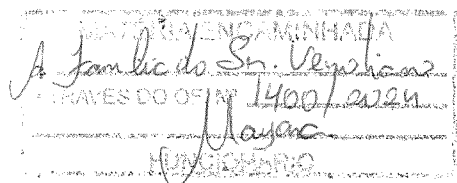 MATÉRIA ENCAMINHADA
A Familia do Sr. Veneliano
ATRAVÉS DO OF. Nº 1400/2024
Mayara
FUNCIONÁRIO